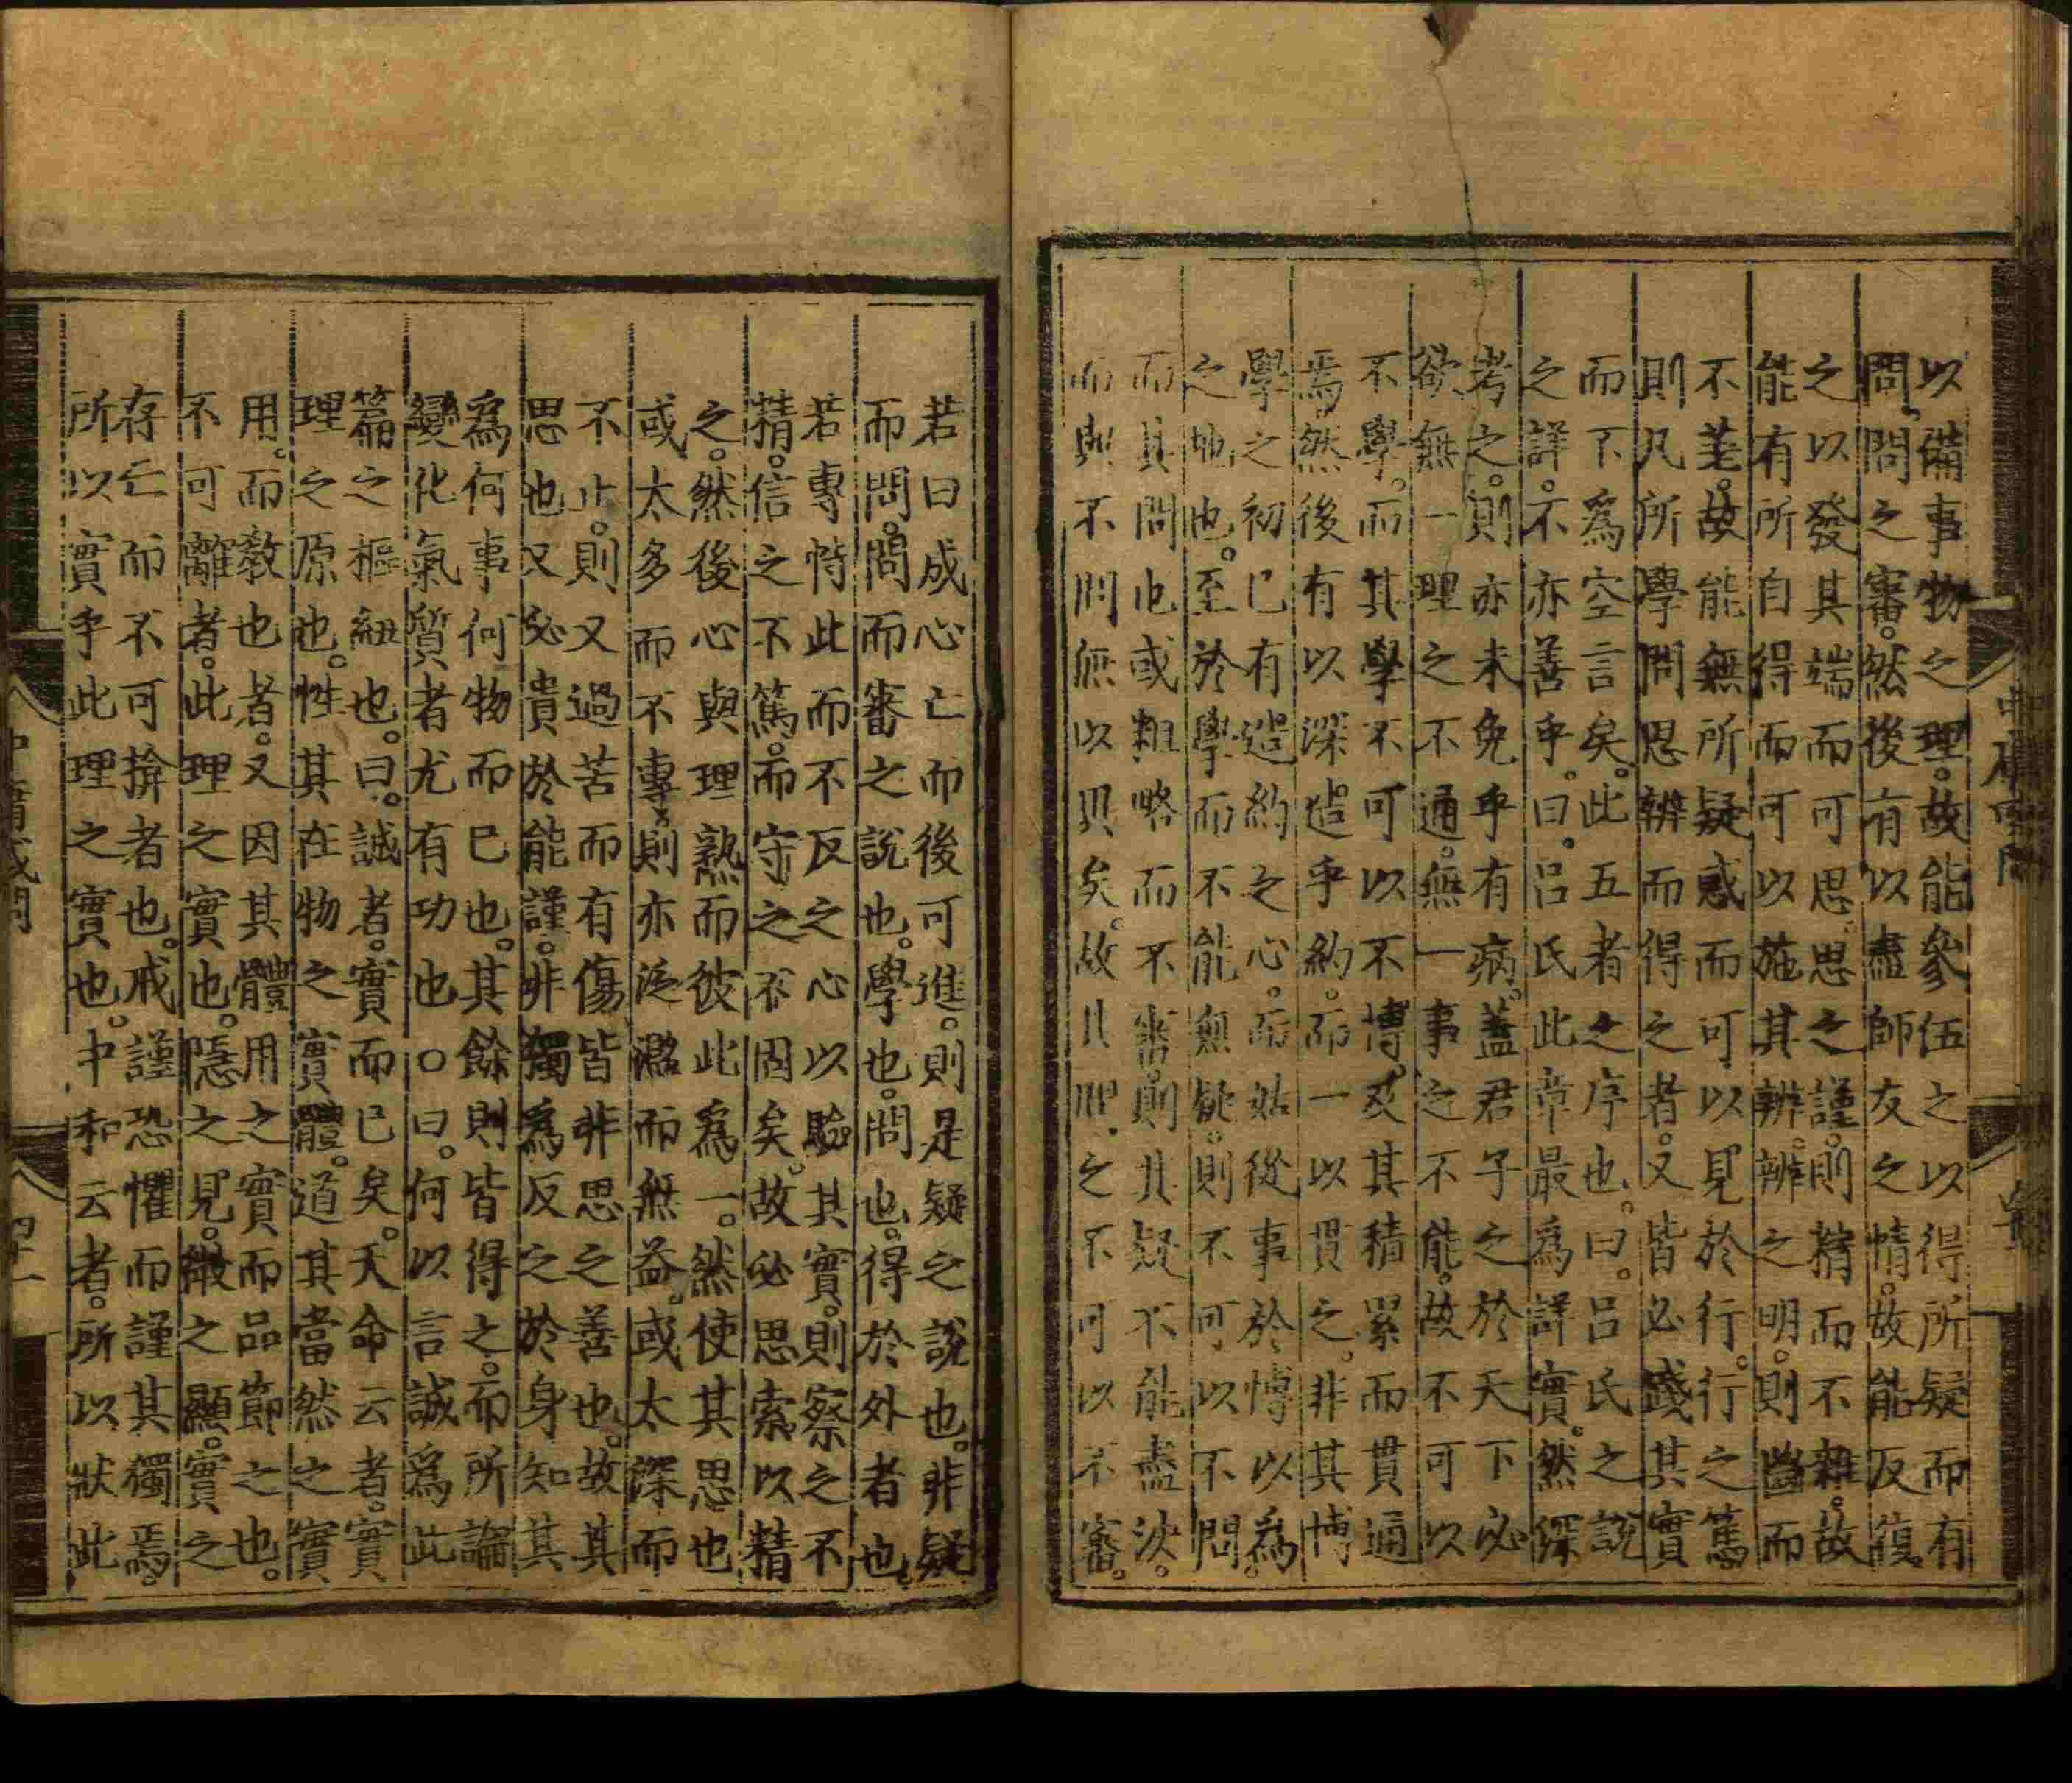 以備事物之理。故能參伍之以得所疑而有
問。問之審。然後有以盡師友之情。故能反復
之以發其端而可思。思之謹。則精而不雜。故
能有所自得而可以施其辨。辨之明。則斷而
不差。故能無所疑惑而可以見於行。行之篤
則凡所學問思辨而得之者。又皆必踐其實
而不爲空言矣。此五者之序也。曰。呂氏之說
之詳。不亦善乎。曰。呂氏此章最爲詳實。然深
考之。則亦未免乎有病。蓋君子之於天下必
欲無一理之不通。無一事之不能。故不可以
不學。而其學不可以不博。及其積累而貫通
焉。然後有以深造乎約。而一以貫之。非其博
學之初已有造約之心。而姑從事於博以爲
之地也。至於學而不能無疑。則不可以不問。
而其問也或粗略而不審。則其疑不能盡決。
而與不問無以異矣。故其問之不可以不審。
若曰成心亡而後可進。則是疑之說也。非疑
而問。問而審之說也。學也。問也。得於外者也。
若專恃此而不反之心以驗其實。則察之不
精。信之不篤。而守之不固矣。故必思索以精
之。然後心與理熟而彼此爲一。然使其思也
或太多而不專。則亦泛濫而無益。或太深而
不止。則又過苦而有傷。皆非思之善也。故其
思也又必貴於能謹。非獨爲反之於身知其
爲何事何物而已也。其餘則皆得之。而所論
變化氣質者尤有功也。○曰。何以言誠爲此
篇之樞紐也。曰。誠者。實而已矣。天命云者。實
理之原也。性其在物之實體。道其當然之實
用。而教也者。又因其體用之實而品節之也。
不可離者。此理之實也。隱之見。微之顯。實之
存亡而不可揜者也。戒謹恐懼而謹其獨焉。
所以實乎此理之實也。中和云者。所以狀此
中庸或問
四十一